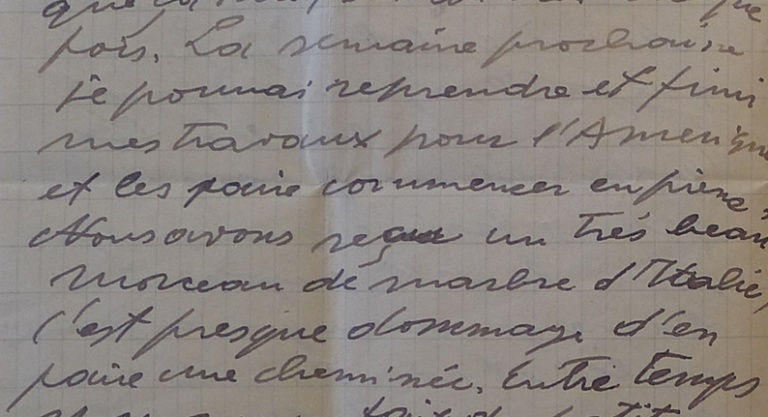 fois. La semaine prochaine
je pourrai reprendre et finir
mes travaux pour l'Amerique
et les faire commencer en pierre.
Nous avons reçu un très beau
morceau de marbre d'Italie,
c'est presque dommage d'en
faire une cheminée. Entre temps